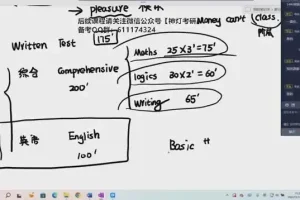 pleasure
后续课程请关注微信公众号【神灯考研】
备考QQ群：611174324
money can't
class.
Written Test
175'
综合 Comprehensive
200'
Maths 25×3'=75'
logics 30×2'=60'
Writing 65'
英语 English
100'
Basic